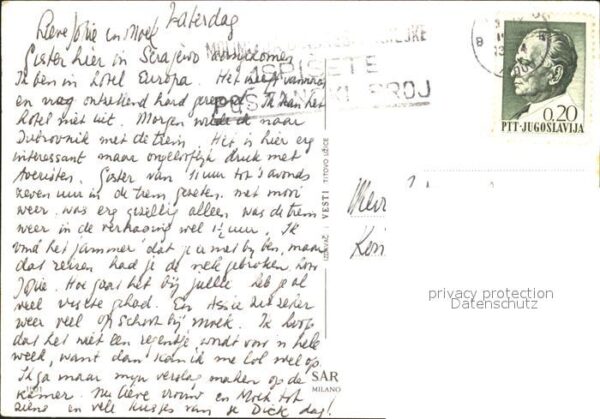 Zaterdag
Lieve Jolie en Moek
Gister hier in Serajewo aangekomen
Ik ben in hotel Europa. Het heeft vannacht
en vrag ontzettend hard geregend. Ik kan het
hotel niet uit. Morgen weer naar
Dubrovnik met de trein. Het is hier erg
interessant maar ongelooflijk druk met
toeristen. Gister van 11 uur tot 's avonds
zeven uur in de trein gezeten. met mooi
weer. was erg gezellig alleen was de trein
weer in de vertraging wel 1½ uur. Ik
vind het jammer dat je er niet bij ben, maar
dat reizen had je de nek gebroken, hoor
Jolie. Hoe gaat het bij jullie heb je al
veel visite gehad. En Assie zit zeker
weer veel op schoot bij Moek. Ik hoop
dat het niet een regentje wordt voor 'n hele
week, want dan kan ik me lol wel op.
Ik ga maar mijn verslag maken op de
kamer. Nu lieve vrouw en Moek tot
ziens en veel kusjes van je Dick dag!
PIŠITE
POŠTANSKI BROJ
0.20
PTT-JUGOSLAVIJA
Mevr
VESTI TITOVO UŽICE
IZDAVAČ
privacy protection
Datenschutz
SAR
MILANO